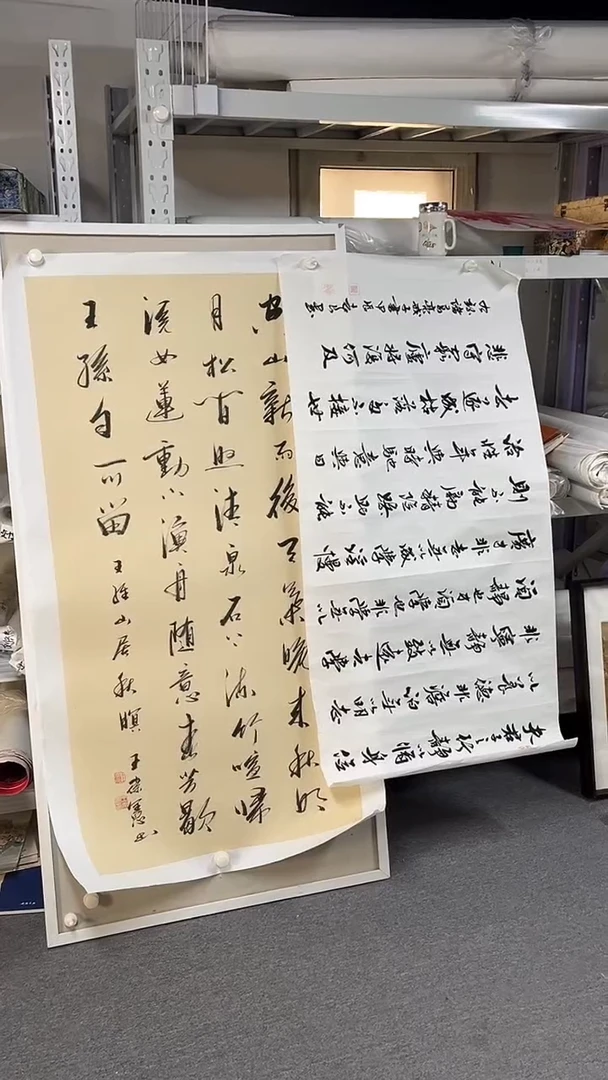 空山新雨後天氣晚来秋明
月松间照清泉石上流竹喧歸
浣女蓮動下漁舟随意春芳歇
王孫自可留 王維山居秋暝
夫君子之行静以脩身俭
以養德非澹泊無以明志
非寧静無以致遠夫學
須静也才須學也非學無以
廣才非志無以成學淫慢
則不能勵精險躁則不能
治性年與時馳意與日
去遂成枯落多不接世
悲守窮廬將復何及
右録諸葛亮誡子書甲辰